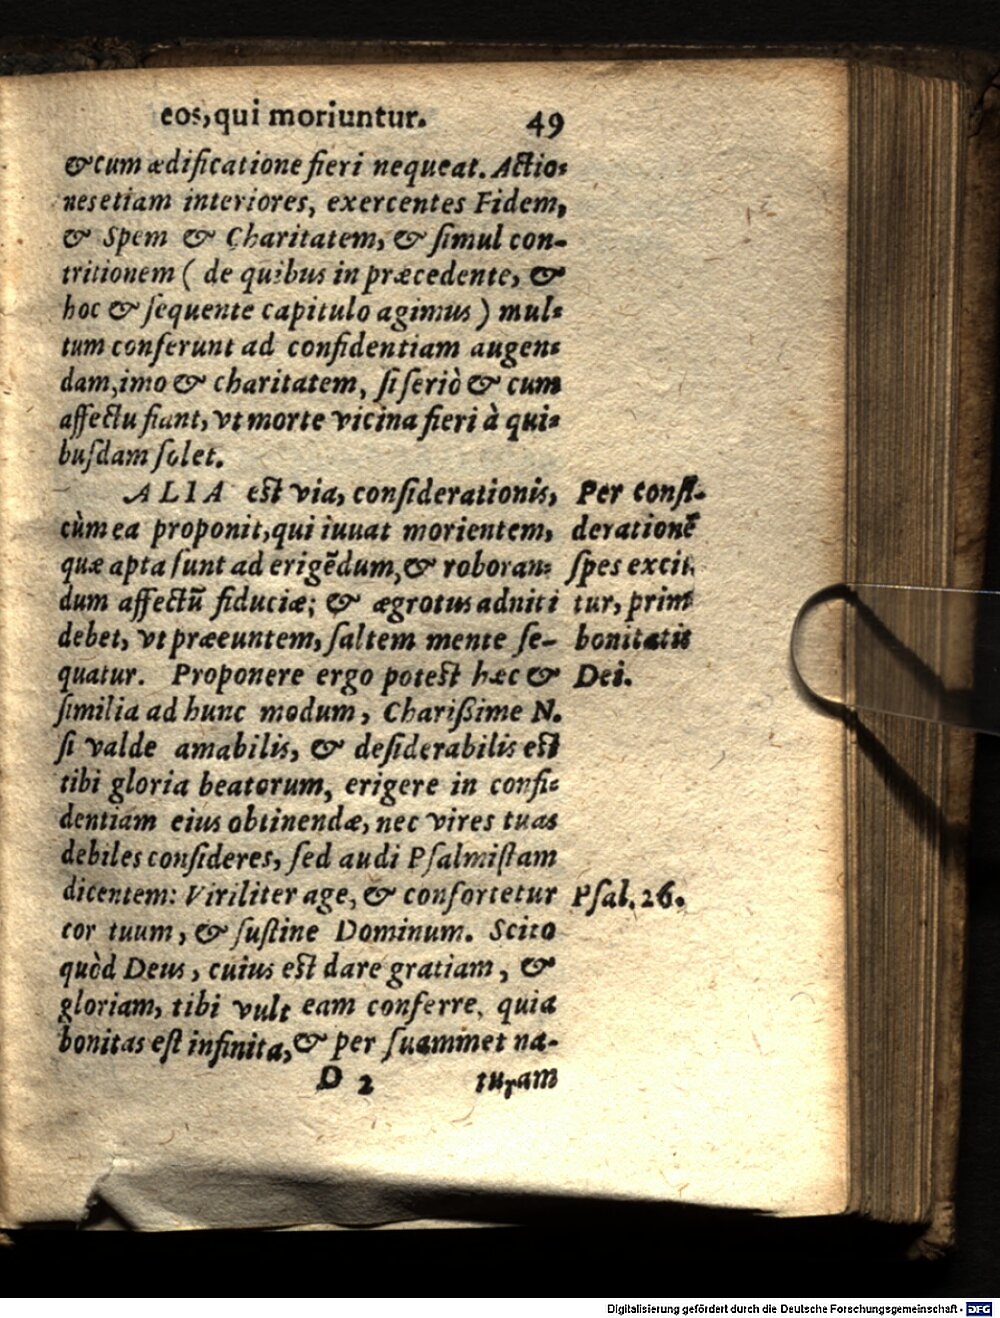 eos, qui moriuntur. 49
& cum ædificatione fieri nequeat. Actio-
nes etiam interiores, exercentes Fidem,
& Spem & Charitatem, & ſimul con-
tritionem ( de quibus in præcedente, &
hoc & ſequente capitulo agimus ) mul-
tum conferunt ad confidentiam augen-
dam, imo & charitatem, ſi ſeriò & cum
affectu fiant, vt morte vicina fieri à qui-
buſdam ſolet.
ALIA eſt via, conſiderationis,
cùm ea proponit, qui iuuat morientem,
quæ apta ſunt ad erigẽdum, & roboran-
dum affectũ fiduciæ; & ægrotus adniti
debet, vt præeuntem, ſaltem mente ſe-
quatur. Proponere ergo poteſt hæc &
ſimilia ad hunc modum, Chariſſime N.
ſi valde amabilis, & deſiderabilis eſt
tibi gloria beatorum, erigere in confi-
dentiam eius obtinendæ, nec vires tuas
debiles conſideres, ſed audi Pſalmiſtam
dicentem: Viriliter age, & confortetur
cor tuum, & ſuſtine Dominum. Scito
quòd Deus, cuius eſt dare gratiam, &
gloriam, tibi vult eam conferre, quia
bonitas eſt infinita, & per ſuammet na-
D 2 turam
Per conſi-
derationẽ
ſpes
tur,
bonitatis
Dei.
Pſal. 26.
Digitalisierung gefördert durch die Deutsche Forschungsgemeinschaft - DFG